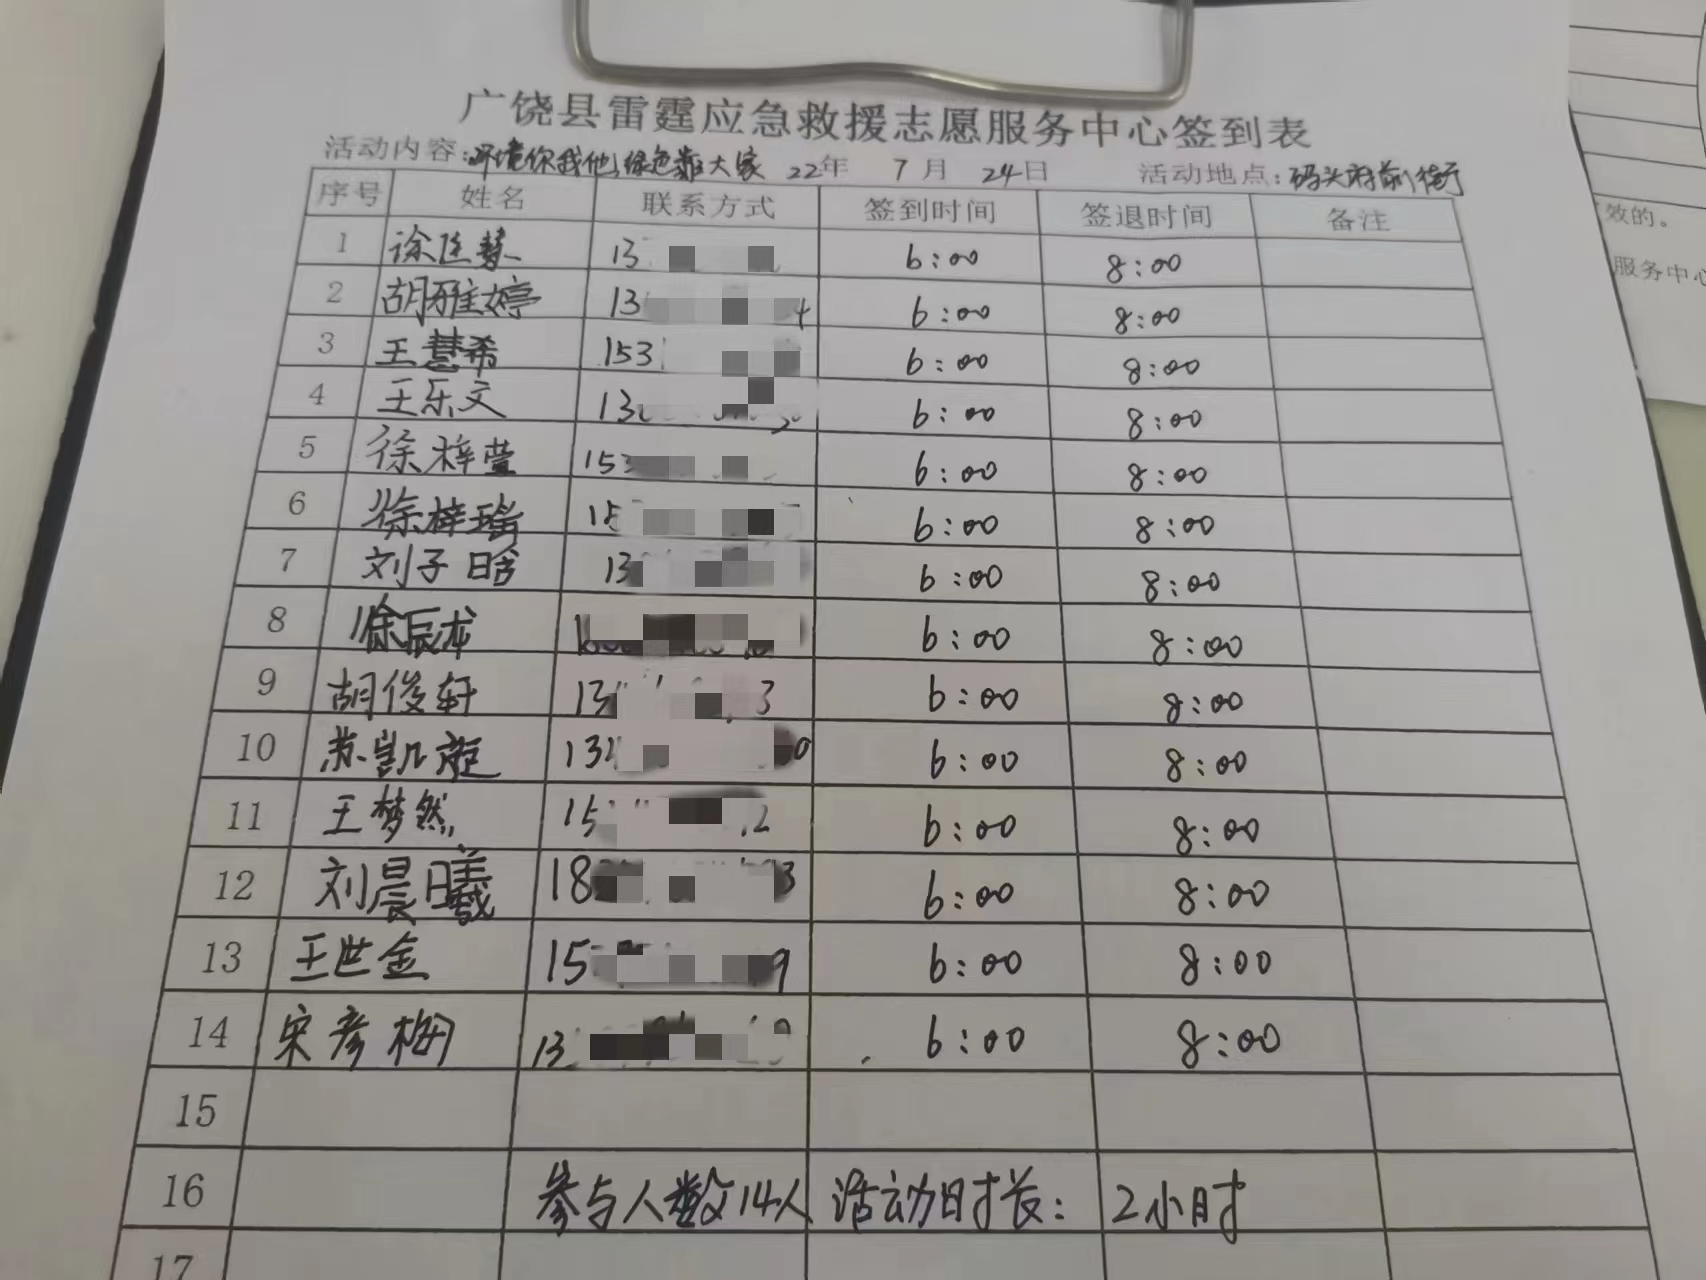 广饶县雷霆应急救援志愿服务中心签到表
活动内容:环境你我他,绿色靠大家 22年 7月 24日 活动地点:码头府前街
序号 姓名 联系方式 签到时间 签退时间 备注
1 徐廷慧 13 6:00 8:00
2 胡雅婷 13 4 6:00 8:00
3 王慧希 153 6:00 8:00
4 王乐文 13 6:00 8:00
5 徐梓萱 153 6:00 8:00
6 徐梓瑶 15 6:00 8:00
7 刘子晗 13 6:00 8:00
8 徐辰龙 1 6:00 8:00
9 胡俊轩 13 3 6:00 8:00
10 苏凯旋 13 0 6:00 8:00
11 王梦然 15 2 6:00 8:00
12 刘晨曦 18 3 6:00 8:00
13 王世金 15 9 6:00 8:00
14 宋彦梅 13 6:00 8:00
15
16 参与人数14人 活动时长: 2小时
17
效的。
服务中心